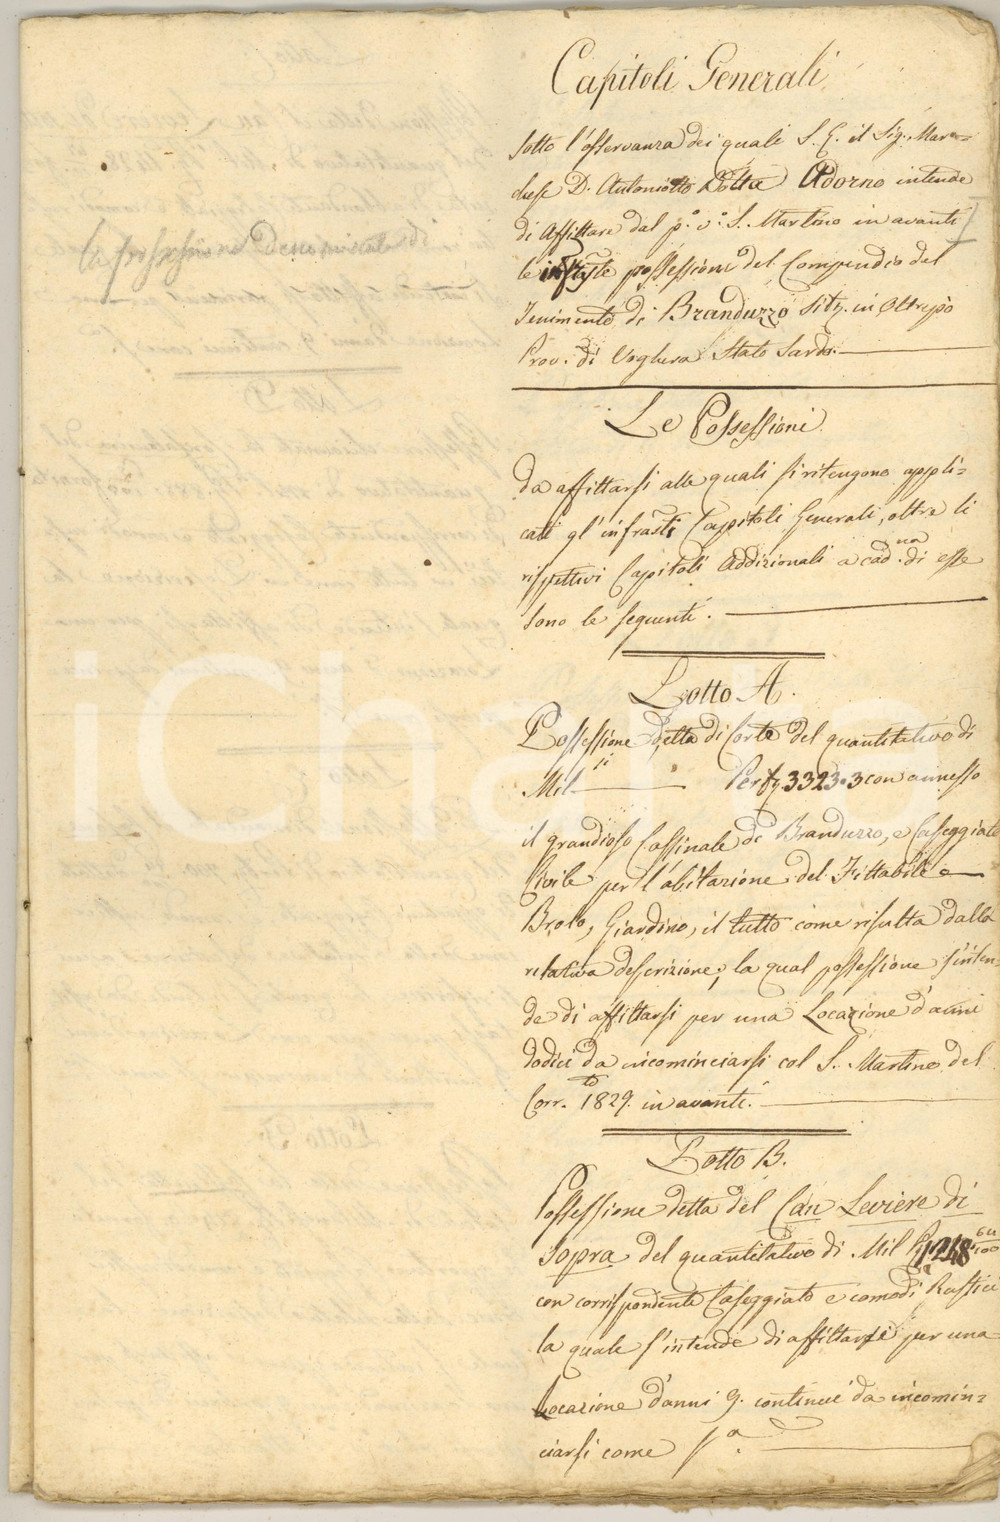 Capitoli Generali
Sotto l'osservanza dei quali S. E. il Sig. Mar=
chese D. Antoniotto Botta Adorno intende
di Affittare dal p.° v.° S. Martino in avanti
le infr.tte possessioni del Compendio del
Tenimento di Branduzzo sit.e in Oltrepò
Prov. di Voghera Stato Sardo.
Le Possessioni
da affittarsi alle quali si ritengono appli=
cati gl'infrasti Capitoli Generali, oltre li
rispettivi Capitoli Addizionali a cad.na di esse
sono le seguenti.
Lotto A.
Possessione detta di Corte del quantitativo di
Mil.si Pert.e 3323.3 con annesso
il grandioso Cassinale di Branduzzo, e Caseggiato
Civile per l'abitazione del Fittabile e
Brolo, Giardino, il tutto come risulta dalla
relativa descrizione; la qual possessione s'inten=
de di affittarsi per una Locazione d'anni
dodici da incominciarsi col S. Martino del
Corr.to 1829. in avanti.
Lotto B.
Possessione detta del Can Leviere di
Sopra del quantitativo di Mil P. 1248
con corrispondente Caseggiato e comodi Rustici
la quale s'intende di affittarsi per una
Locazione d'anni 9. continui da incomin=
ciarsi come s.a
la possessione denominata di
iCharta